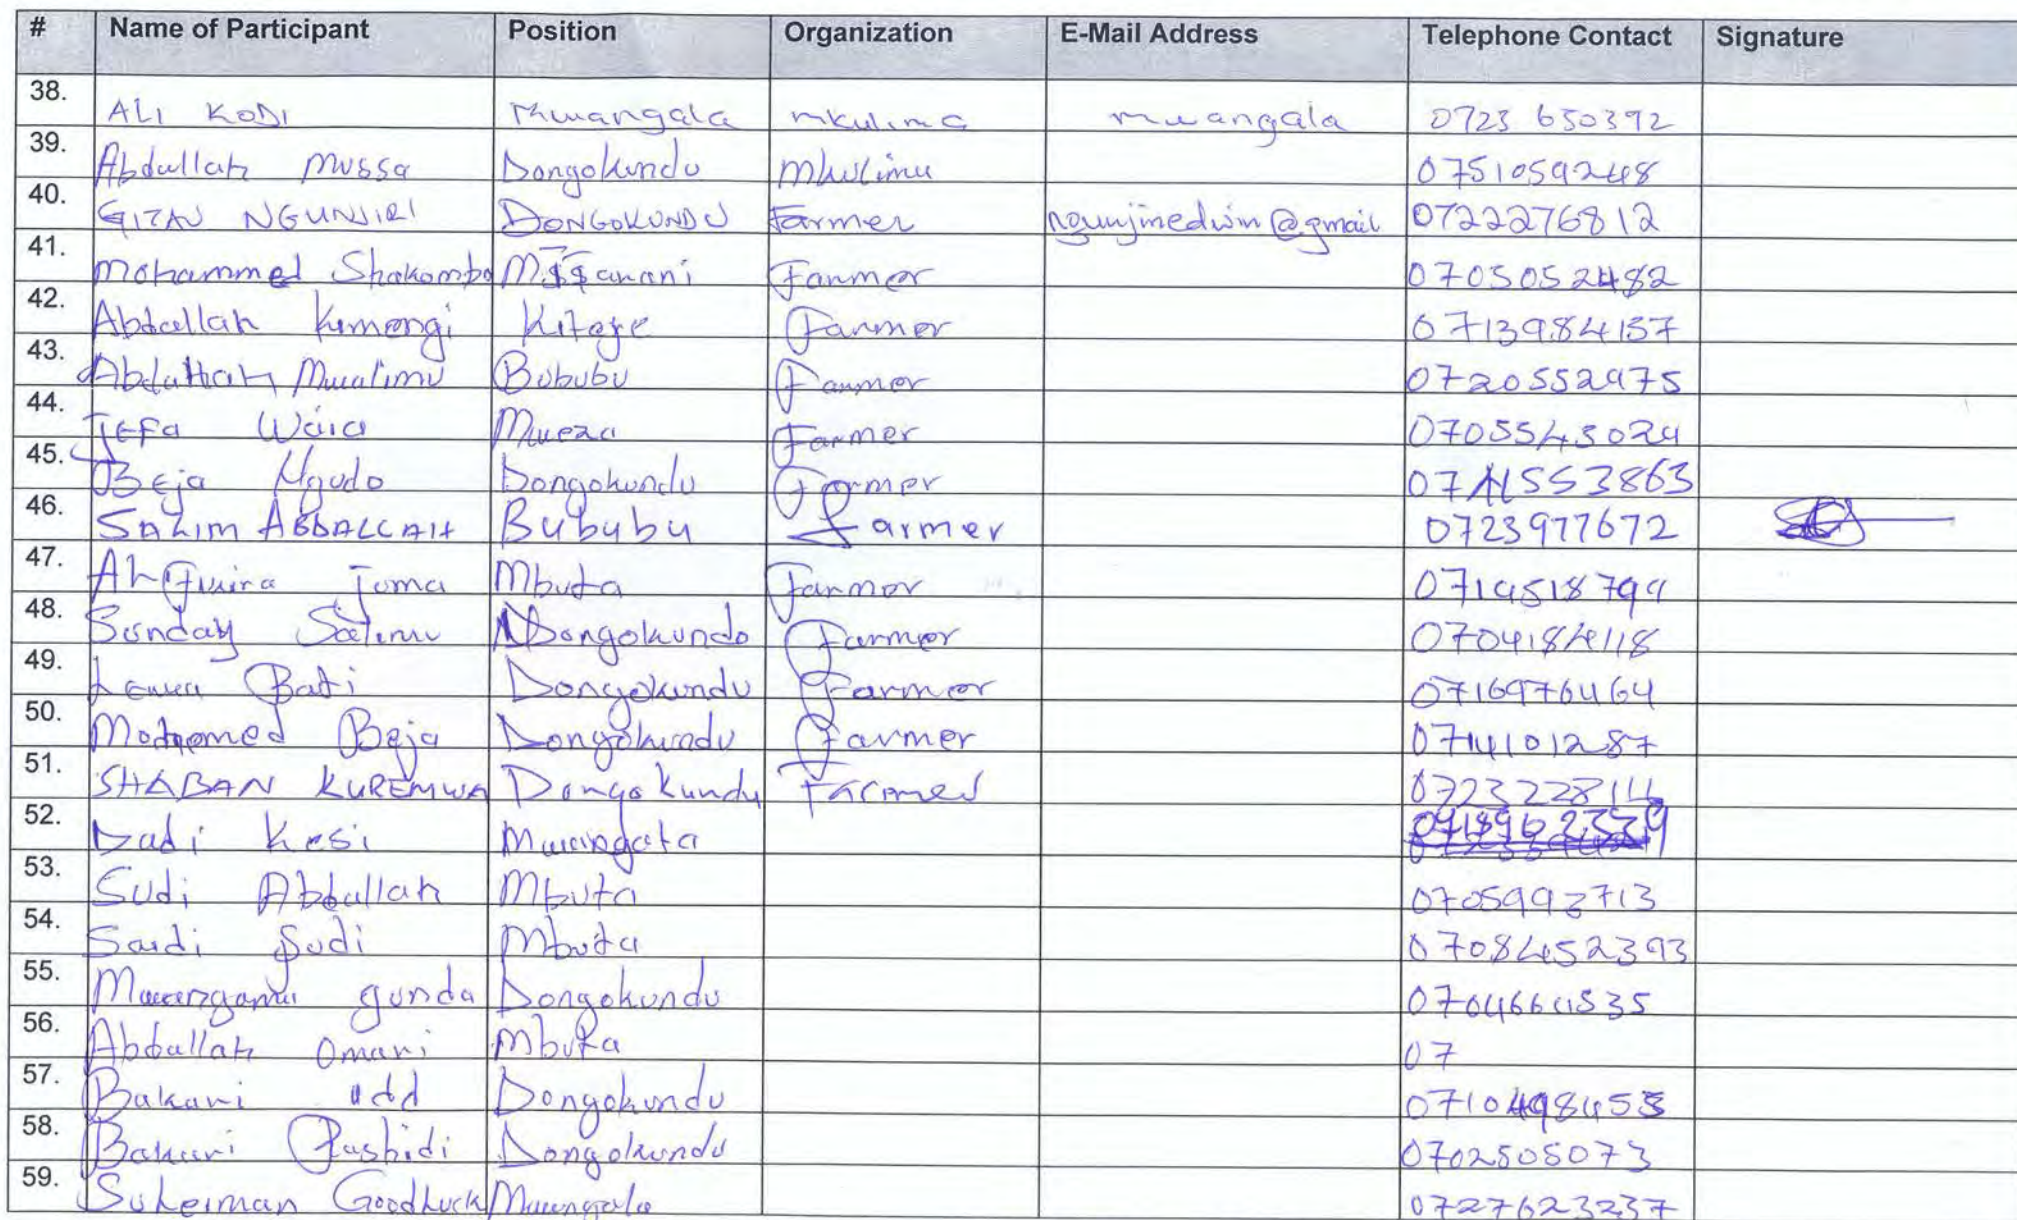 # Name of Participant Position Organization E-Mail Address Telephone Contact Signature
38. ALI KODI Mwangala mkulima mwangala 0723 650392
39. Abdallah Mussa Dongokundu Mkulimu 0751059248
40. GITAU NGUNJIRI DONGOKUNDU Farmer 0722276812
41. Mohammed Shakombo Farmer 0705052482
42. Abdallah Kimongi Farmer 0713984157
43. Abdallah Mwalimu Bububu Farmer 0720552975
44. Jefa Mweza Farmer
45. Beja Ngudo Dongokundu Farmer
46. SALIM ABDALLAH Bububu Farmer 0723977672
47. Juma Mbuta Farmer
48. Sunday Salimu Dongokundo Farmer 0704184118
49. Bati Dongokundu Farmer 0716976464
50. Mohamed Beja Dongokundu Farmer 0714101287
51. SHABAN KUREMWA Dongo Kundu Farmer
52. Dadi
53. Sudi Abdallah Mbuta
54. Saidi Sudi Mbuta 0708452393
55. gunda Dongokundu
56. Abdallah Omari Mbuta 07
57. Bakari Dongokundu
58. Bakari Rashidi Dongokundu 0702505073
59. Suleiman Goodluck 0727623237